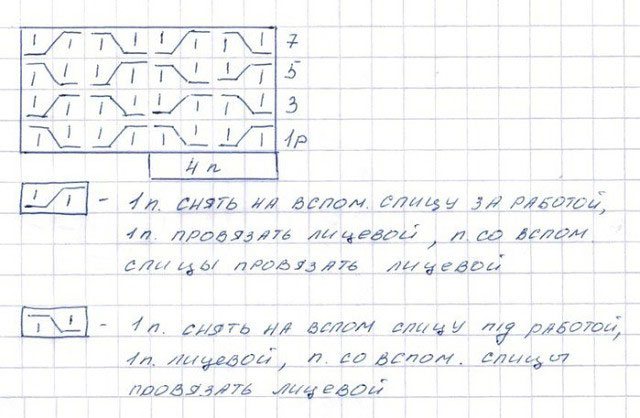 7
5
3
1р
4 п
- 1п. снять на вспом. спицу за работой,
1п. провязать лицевой, п. со вспом.
спицы провязать лицевой
- 1п. снять на вспом спицу під работой,
1п. лицевой, п. со вспом. спицы
провязать лицевой